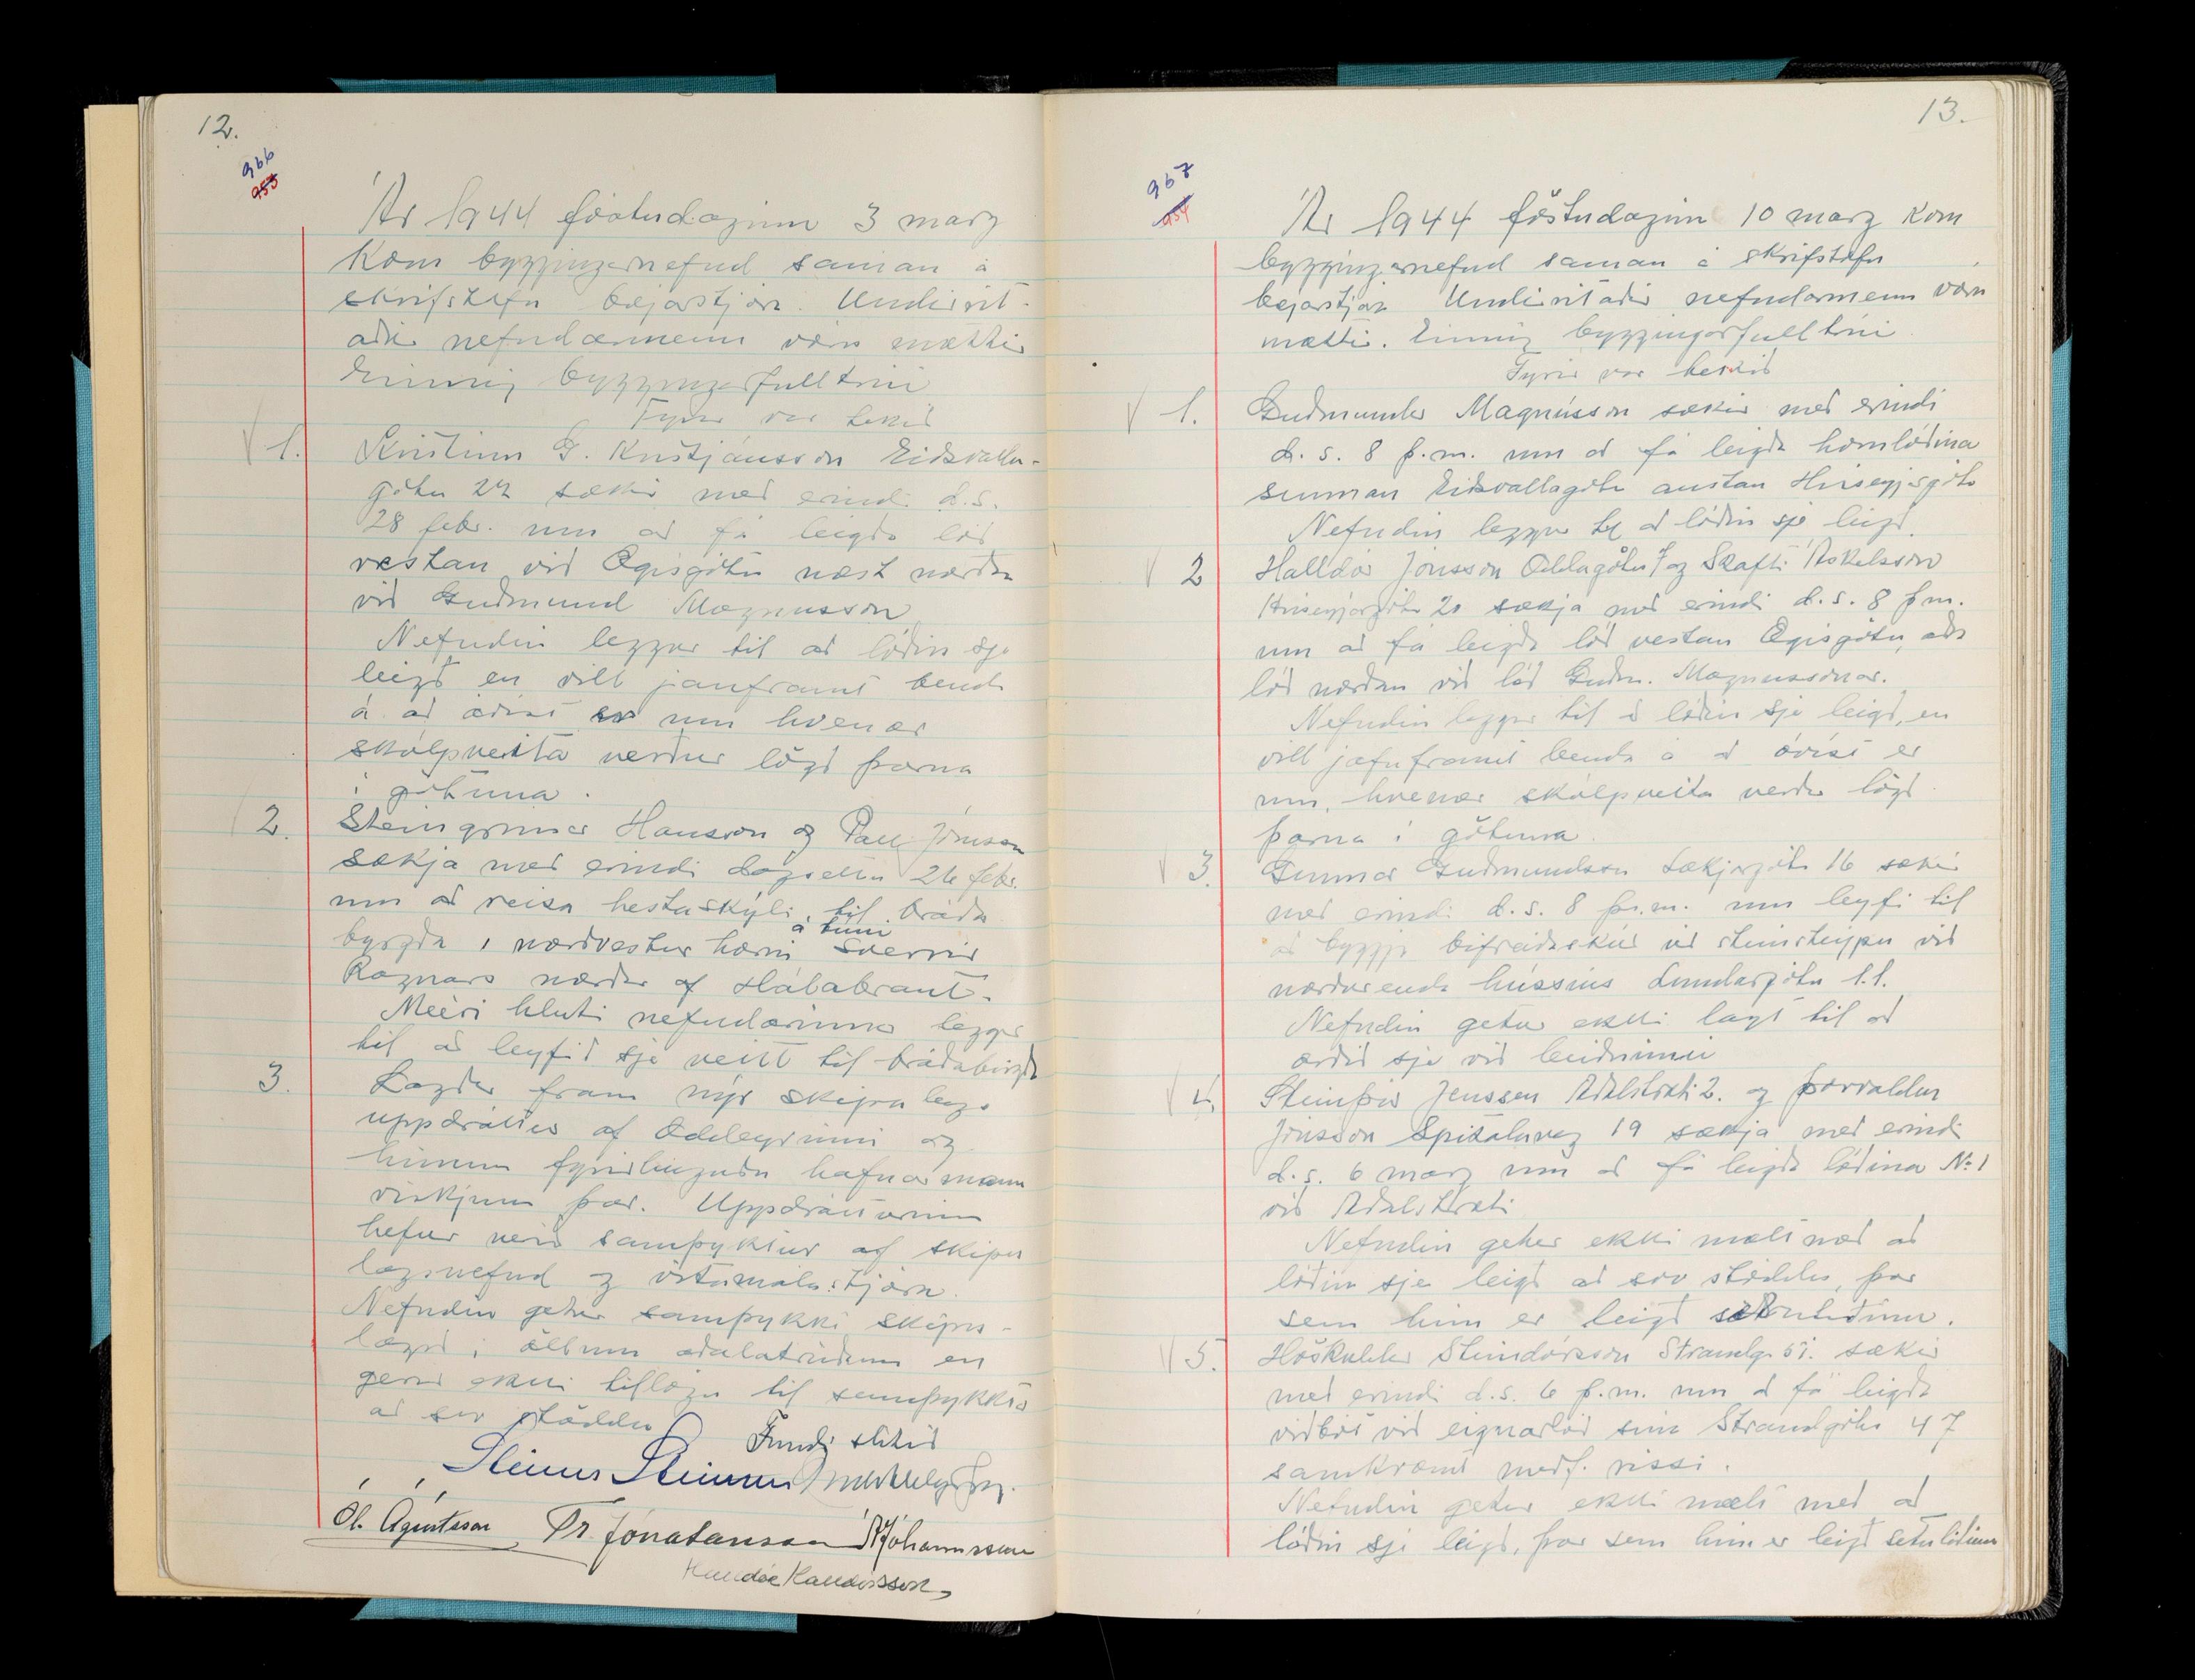 12.
966
953
Ár 1944 föstudaginn 3 marz
kom byggingarnefnd saman á
skrifstofu bæjarstjóra. Undirrit-
aðir nefndarmenn vóru mættir
Einnig byggingarfulltrúi
Fyrir var tekið
1. Kristinn G. Kristjánsson Eiðsvalla-
götu 22 sækir með erindi d.s.
28 febr. um að fá leigða lóð
vestan við Ægisgötu næst norðan
við Guðmund Magnússon
Nefndin leggur til að lóðin sje
leigð en vill jafnframt benda
á að óvíst er um hvenær
skólpveita verður lögð þarna
í götuna.
2. Steingrímur Hansson og Páll Jónsson
sækja með erindi dagsettu 26 febr.
um að reisa hestaskýli, til bráða
á túni
byrgða í norðvestur horni Sverris
Ragnars norður af Hálabraut.
Meiri hluti nefndarinnar leggur
til að leyfið sje veitt til bráðabirgða
3. Lagður fram nýr skipulags
uppdráttur af Oddeyrinni og
hinum fyrirhuguðu hafnarmann
virkjum þar. Uppdrátturinn
hefur verið samþyktur af skipu
lagsnefnd og vitamálastjóra.
Nefndin getur samþykkt skipu-
lagið í öllum aðalatriðum en
gerir ekki tillögu til samþykktar
að svo stöddu
Fundi slitið
Steinn Steinsen
Ól. Ágústsson Tr. Jónatansson Jóhannsson
Halldór Halldórsson
13.
967
954
Ár 1944 föstudaginn 10 marz kom
byggingarnefnd saman á skrifstofu
bæjarstjóra Undirritaðir nefndarmenn vóru
mættir. Einnig byggingarfulltrúi
Fyrir var tekið
1. Guðmundur Magnússon sækir með erindi
d.s. 8 þ.m. um að fá leigða hornlóðina
sunnan Eiðsvallagötu austan Hríseyjargötu
Nefndin leggur til að lóðin sje leigð.
2 Halldór Jónsson Oddagötu 7 og Skafti Áskelsson
Hríseyjargötu 20 sækja með erindi d.s. 8 þ.m.
um að fá leigða lóð vestan Ægisgötu, aðra
lóð norðan við lóð Guðm. Magnússonar.
Nefndin leggur til að lóðin sje leigð, en
vill jafnframt benda á að óvíst er
um, hvenær skólpveita verður lögð
þarna í götuna.
3. Gunnar Guðmundsson Lækjargötu 16 sækir
með erindi d.s. 8 þ.m. um leyfi til
að byggja bifreiðaskúr úr steinsteypu við
norðurenda hússins Lundargötu 11.
Nefndin getur ekki lagt til að
orðið sje við beiðninni
4. Steinþór Jensson Aðalstræti 2. og Þorvaldur
Jónsson Spítalaveg 19 sækja með erindi
d.s. 6 marz um að fá leigða lóðina No 1
við Aðalstræti
Nefndin getur ekki mælt með að
lóðin sje leigð að svo stöddu, þar
sem hún er leigð setuliðinu.
5. Höskuldur Steindórsson Strandg. 51. sækir
með erindi d.s. 6 þ.m. um að fá leigða
viðbót við eignarlóð sína Strandgötu 47
samkvæmt meðf. rissi.
Nefndin getur ekki mælt með að
lóðin sje leigð, þar sem hún er leigð setuliðinu